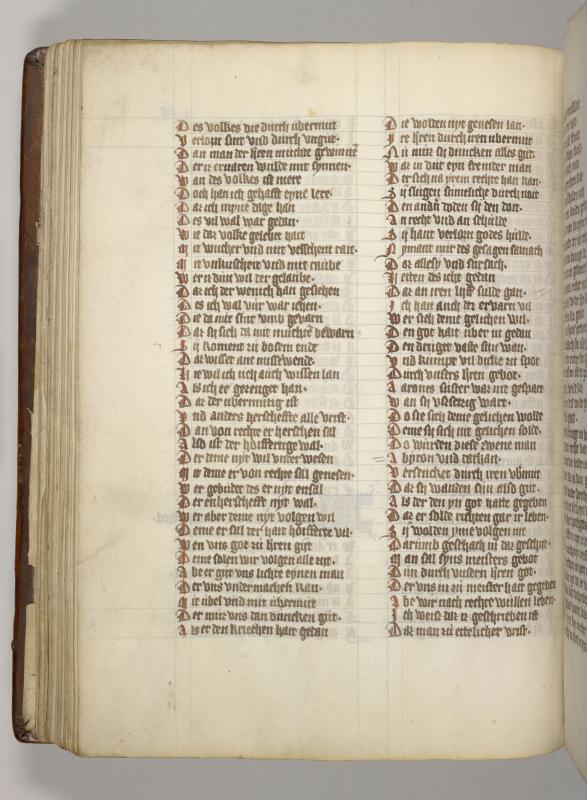 Des volkes die durch ubermut
Verlorn sint vnd durch vngut·
Dan man der heren muchte gewinnen
Der u ervaren wulde mit synnen·
Wan des volkes ist mere
Doch han ich gehafft eyne lere·
Dar ich myne dage han
Des vil wal war gedan·
Wie daz volke gelebet hait
Mit wucher vnd mit velschem rait·
Mit vnkuscheit vnd mit
Wer n dunt wil der gelaube·
Daz ich der wenich hait gesehen
Des ich wal vur war iehen·
Die da mit sint vmb gevarn
Daz sy sich da mit muchten bewarn
Sij koment zu bosem ende
Daz wisset ane missewende·
Nie wil ich uch auch wissen lan
Als ich ee gezeuget han·
Daz der ubermutig ist
Vnd anders herscheffte alle vrist·
Dan von rechte er herschen sal
Also ist der hoffertige wal·
Der deme nyt wil vnder wesen
Mit deme er von rechte sal genesen·
Wer gebudet des er nyt ensal
Der en herschefft nyt wal·
Wer aber deme nyt volgen wil
Deme er sal der hait hofferte vil·
Wen vns got zu heren gijt
Deme solen wir volgen alle zijt·
Aber er gijt vns lichte eynen man
Der vns vndermachen kan·
Mit ubel vnd mit ubermut
Der mut vns dan duncken gut·
Als er den kriechen hait gedan
Die wolden nyt genesen lan·
Ire heren durch iren ubermut
Nu muz sij duncken alles gut·
Waz in dut eyn fremder man
Der sich na yrem rechte han kan·
Sij slugen sumeliche durch noit
Den andern doden sij den doit·
An recht vnd an schulde
Sij hant verlorn godes hulde·
Nymant mir des gesagen
Daz allesz vnd sur sach·
Heten des icht gedan
Daz an iren lijff sulde gan·
Ich han auch daz ervarn vil
Wer sich deme gelichen wil·
Den got hait uber in gedan
Den bedruget vaste sin wan·
Vnd kumpt vil dicke zu spot
Durch vnsers heren gebot·
Aarones suster wart nit gespart
Wan sij vsseczig wart·
Do sie sich deme gelichen wolde
Deme sij sich nit gelichen solde·
Do wurden diese zwene man
Abyron vnd dathan·
Versencket durch iren ubermut
Daz sij wanden sijn also gut·
Als der den yn got hatte gegeben
Daz er solde richten gar ir leben·
Sij wolden yme volgen nit
Darumb geschach in daz geschijt·
Man sal syns meisters gebot
Dun durch vnsern heren got·
Der vns in zu meister hait gegeben
Abe wir nach rechte wullen leben·
Ich weis daz iz geschrieben ist
Daz man zu ettelicher vrist·